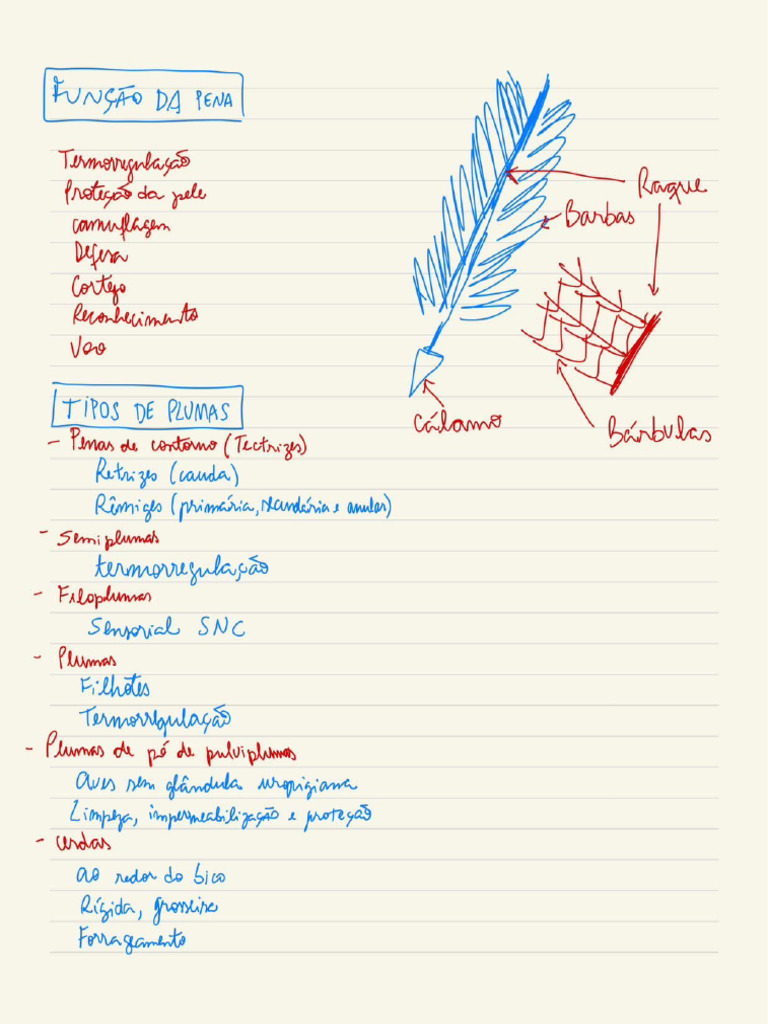 FUNÇÃO DA PENA
Termorregulação
Proteção da pele
camuflagem
Defesa
Cortejo
Reconhecimento
Voo
Raque
Barbas
Cálamo
Bárbulas
TIPOS DE PLUMAS
- Penas de contorno (Tectrizes)
Retrizes (cauda)
Rêmiges (primária, secundária e anular)
- Semiplumas
termorregulação
- Filoplumas
Sensorial SNC
- Plumas
Filhotes
Termorregulação
- Plumas de pó de pulviplumas
Aves sem glândula uropigiana
Limpeza, impermeabilização e proteção
- cerdas
ao redor do bico
Rígida, grosseira
Forrageamento